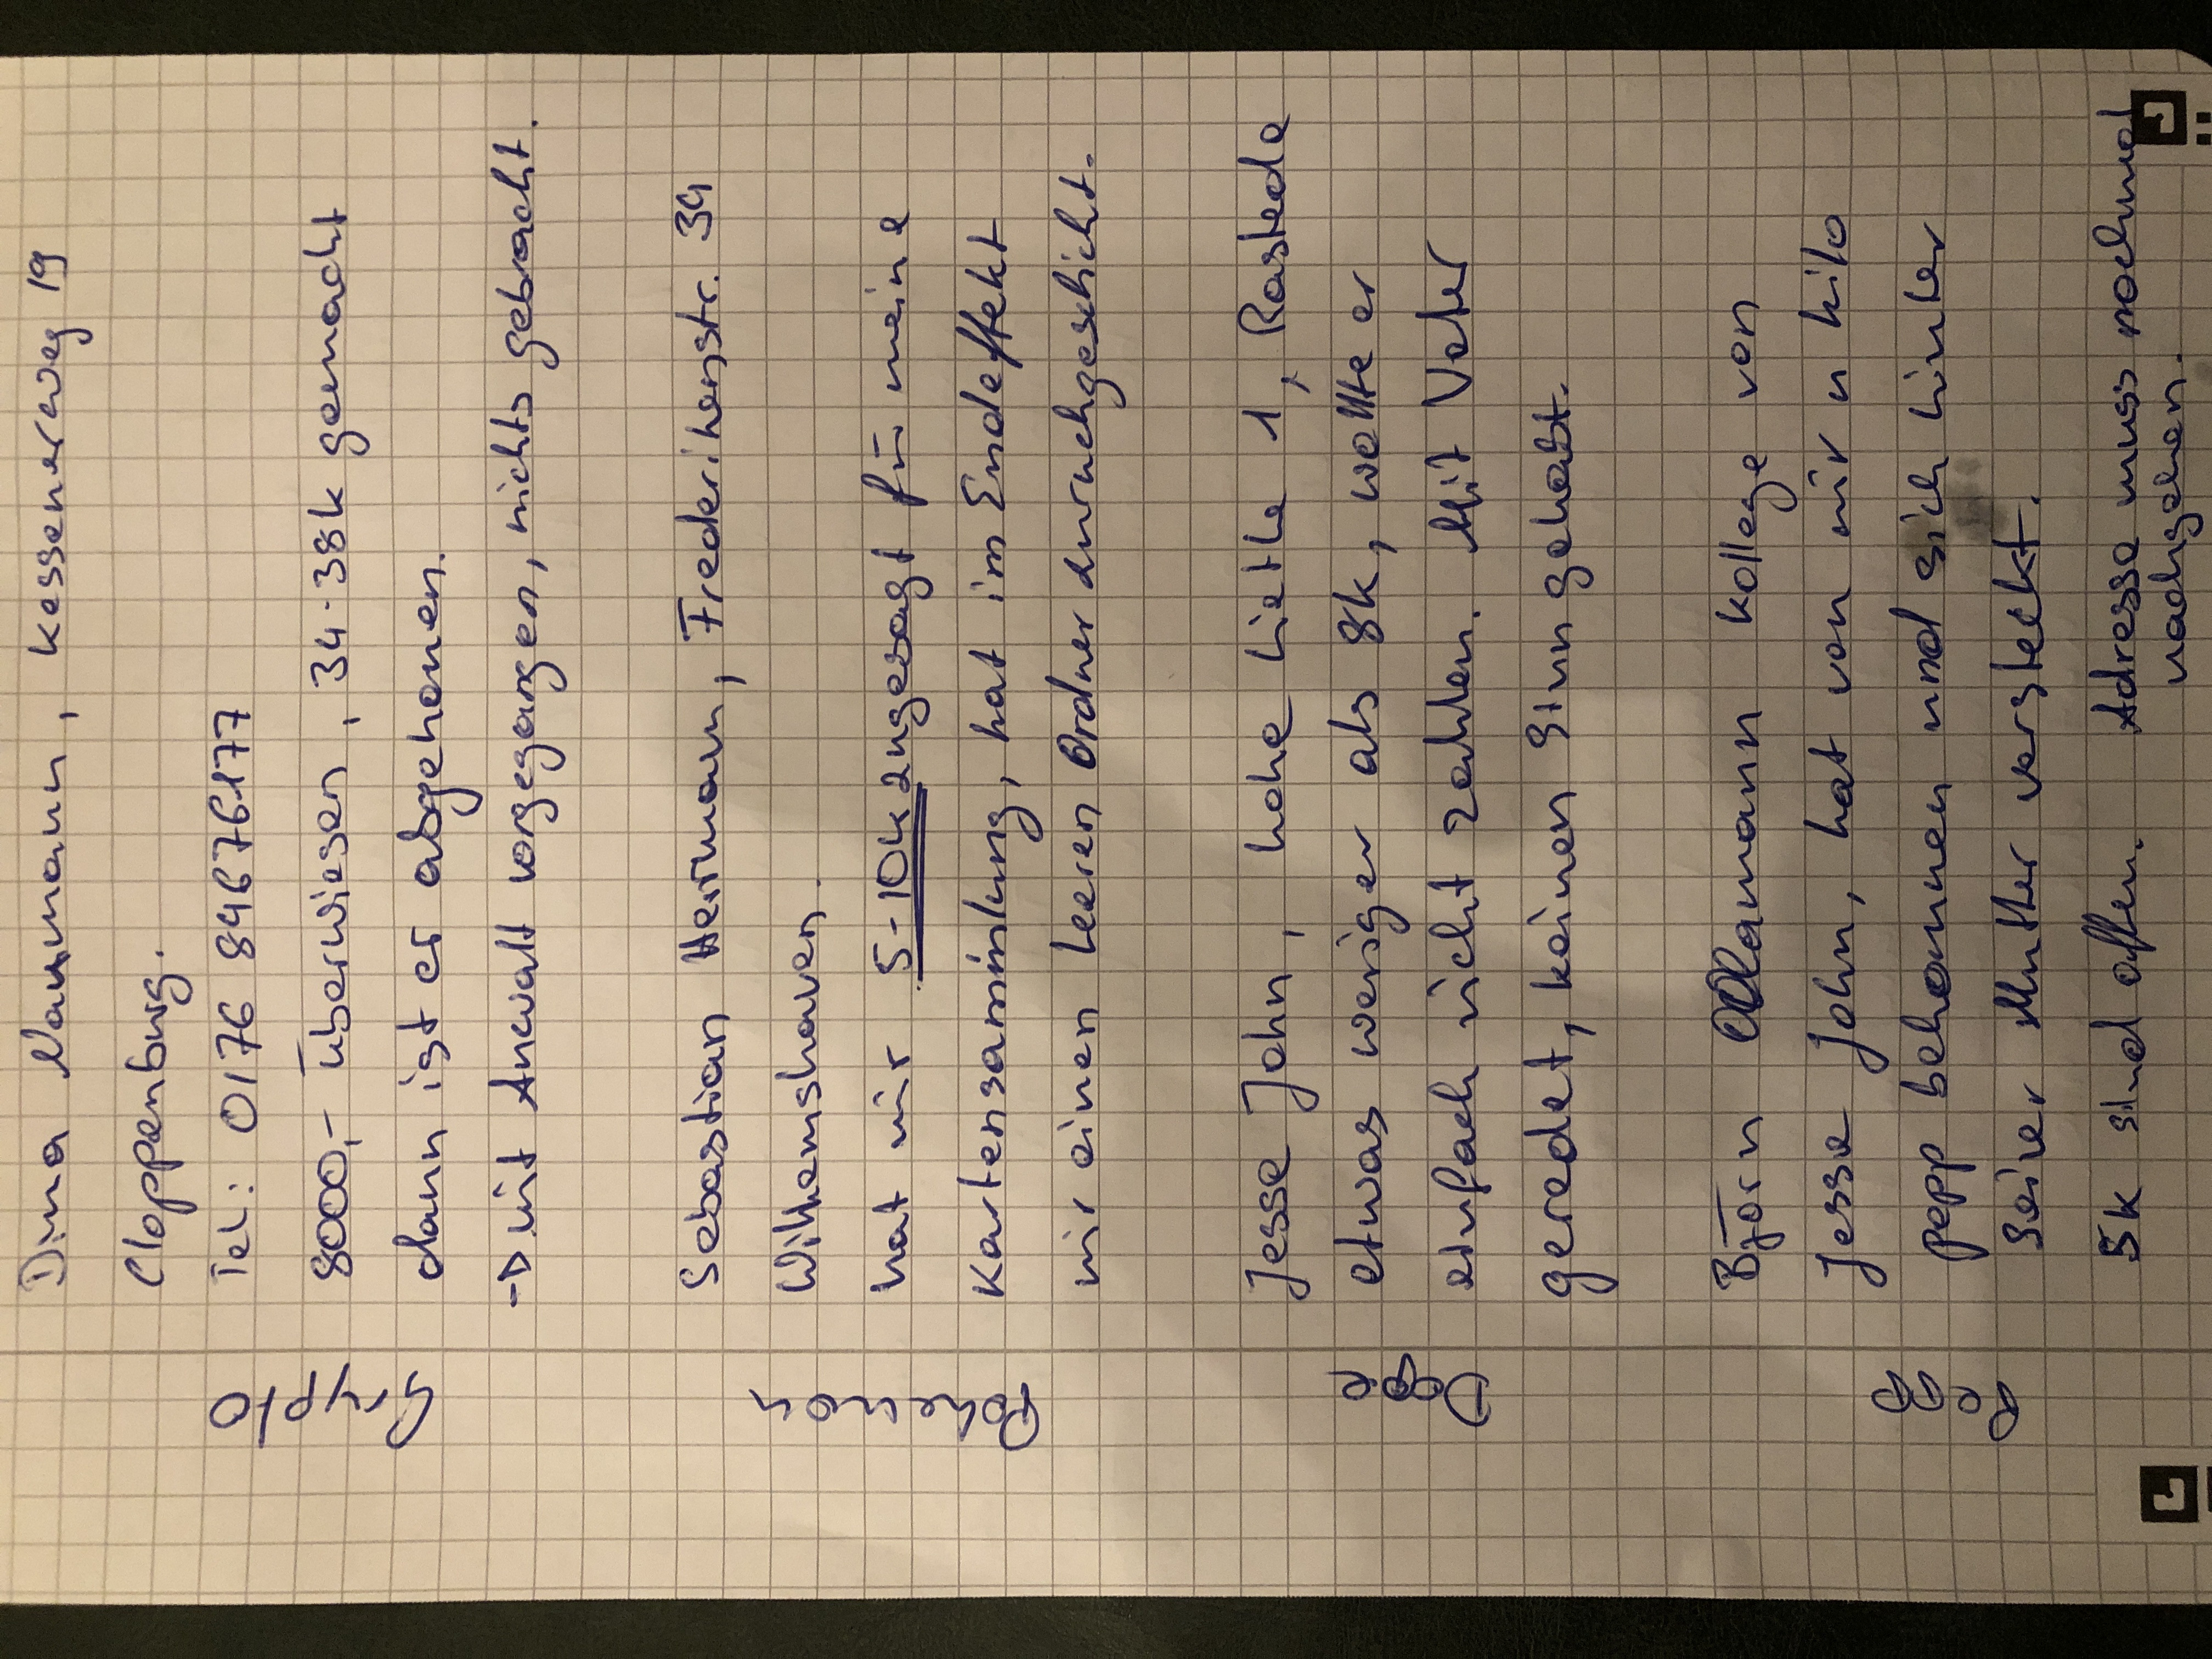 Dima Naumann, kessenerweg 19
Cloppenburg.
Tel: 0176 84676177
8000,- überwiesen, 34-38k gemacht
dann ist er abgehauen.
→ mit Anwalt vorgegangen, nichts gebracht.
Sebastian Hermann, Frederikenstr. 34
Wilhemshaven.
hat mir 5-10k zugesagt für meine
Kartensammlung, hat im Endeffekt
mir einen leeren Ordner durchgeschickt.
Jesse John, hohe Liethe 1, Rastede
etwas weniger als 8k, wollte er
einfach nicht zahlen. Mit Vater
geredet, keinen Sinn gehabt.
Björn kollege von
Jesse John, hat von mir n kilo
pepp bekommen und sich hinter
seiner Mutter versteckt.
5k sind offen. Adresse muss nochmal
nachgehen.